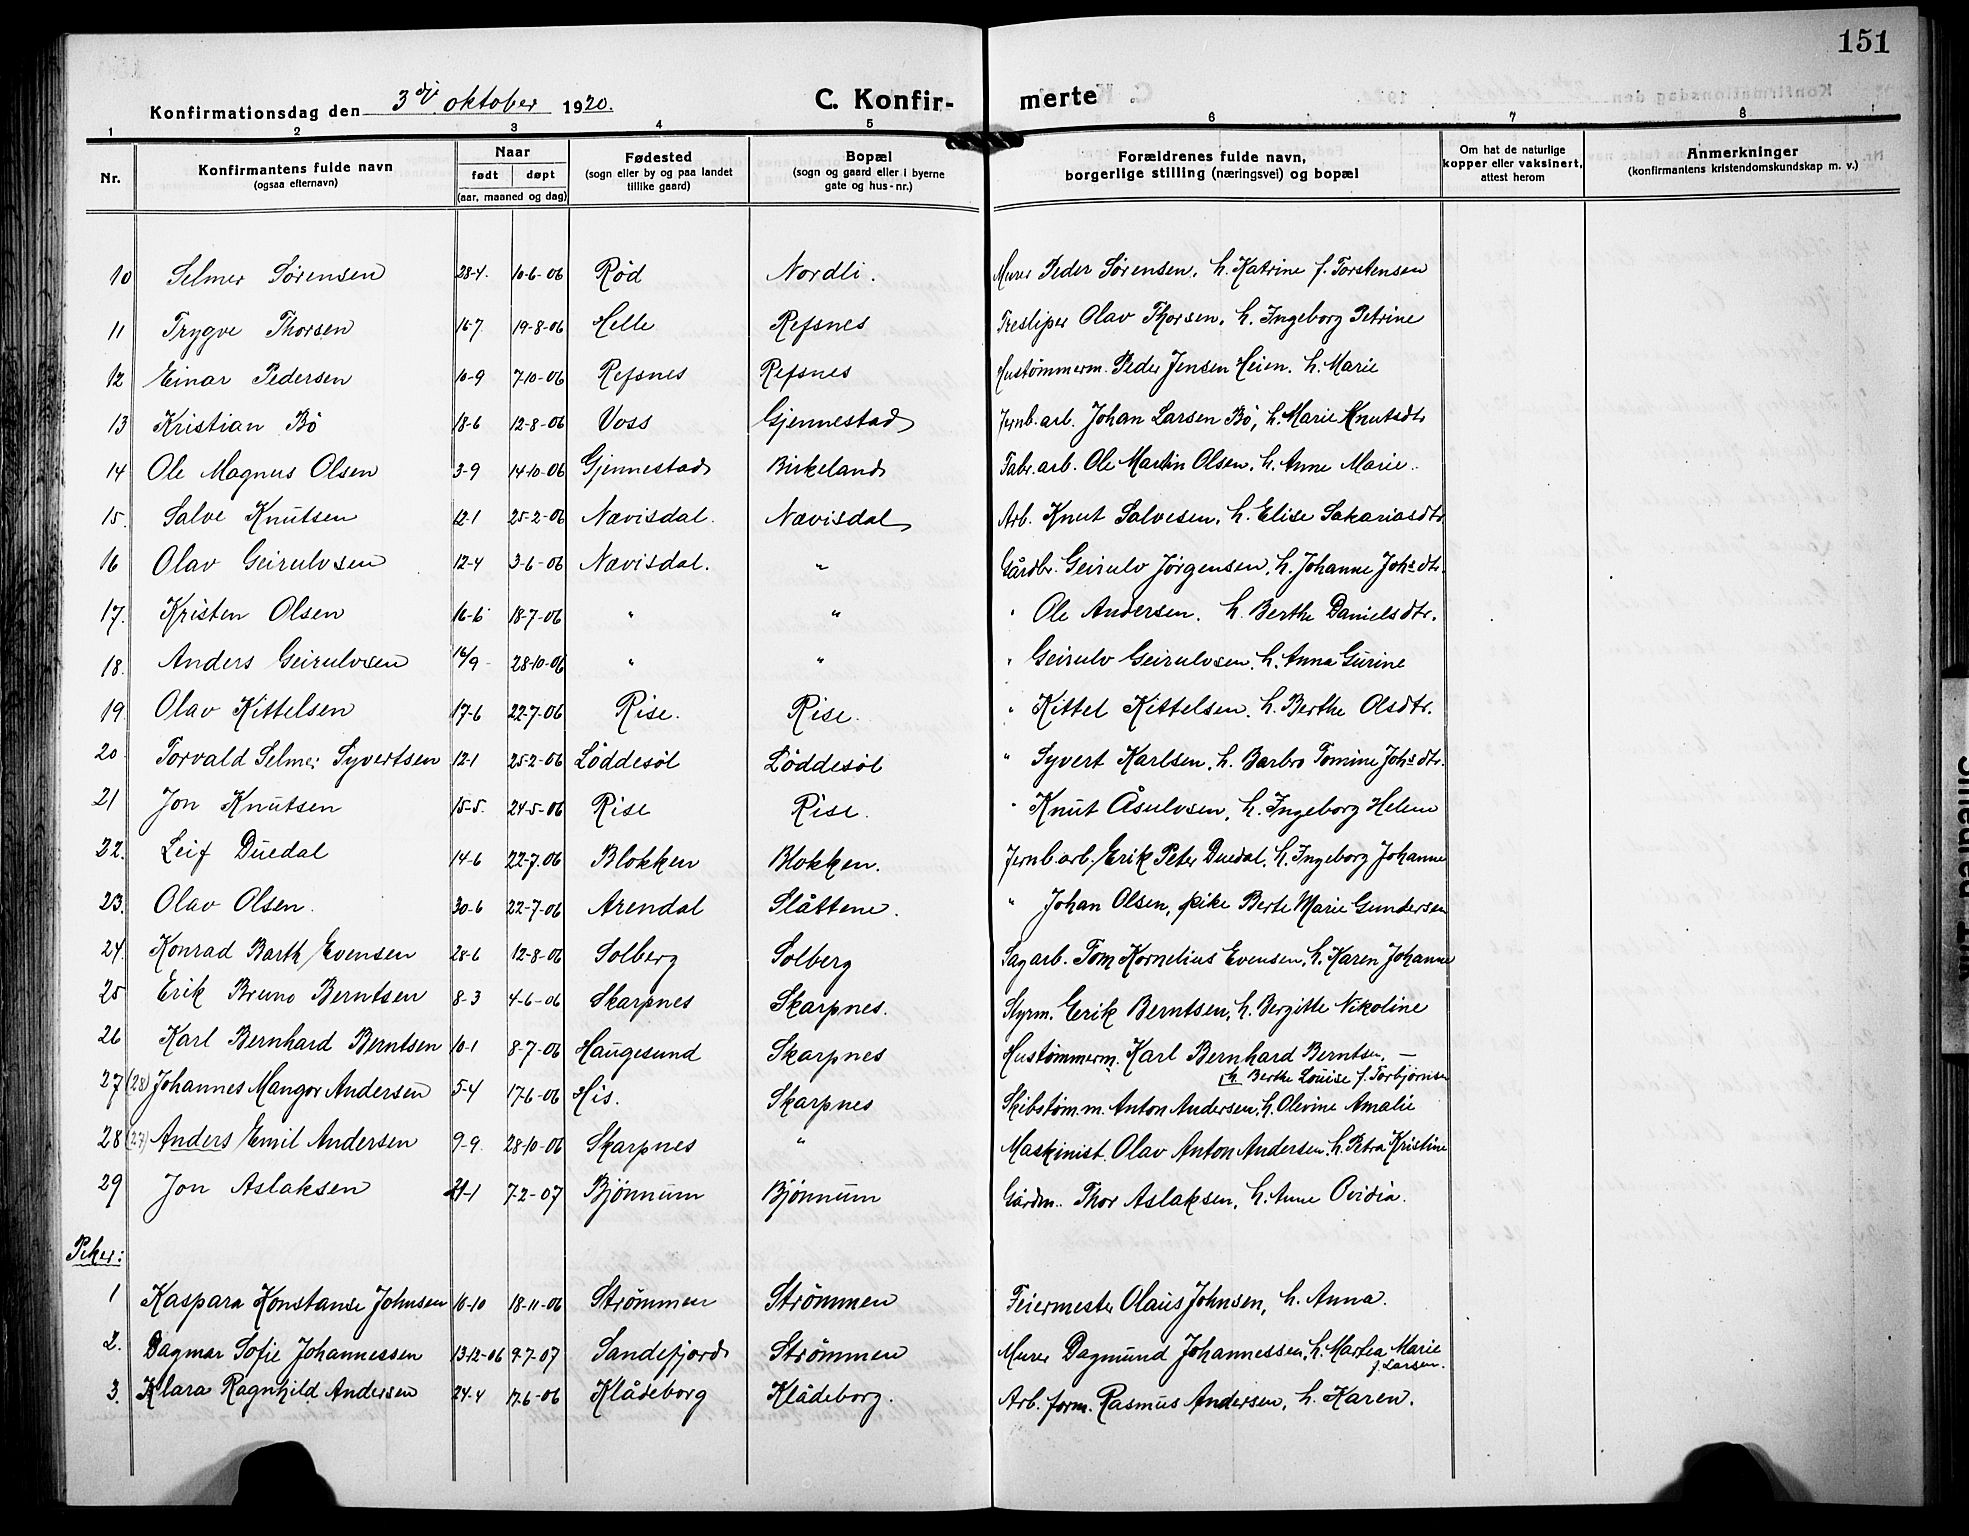 151
Konfirmationsdag den 3di oktober 1920. C. Konfir- merte
1 2 3 4 5 6 7 8
Nr. Konfirmantens fulde navn (ogsaa efternavn) Naar født døpt (aar, maaned og dag) Fødested (sogn eller by og paa landet tillike gaard) Bopæl (sogn og gaard eller i byerne gate og hus-nr.) Forældrenes fulde navn, borgerlige stilling (næringsvei) og bopæl Om hat de naturlige kopper eller vaksinert, attest herom Anmerkninger (konfirmantens kristendomskundskap m. v.)
10 Selmer Sørensen 28-4. 10-6-06 Rød Nordli. Murer Peder Sørensen, h. Katrine f. Torstensen
11 Trygve Thorsen 16-7 19-8-06 Helle Refsnes Tresliper Olav Thorsen, h. Ingeborg Petrine
12 Einar Pedersen 10-9 7-10-06 Refsnes Refsnes Hustømmerm. Peder Jensen Heien. h. Marie
13 Kristian Bø 18-6 12-8-06 Voss Gjennestad Jernb.arb. Johan Larsen Bø, h. Marie Knutsdtr
14 Ole Magnus Olsen 3-9 14-10-06 Gjennestad Birkeland Fabr.arb. Ole Martin Olsen, h. Anne Marie.
15. Salve Knutsen 12-1 25-2-06 Nævisdal. Nævisdal Arb. Knut Salvesen, h. Elise Sakariasdtr
16 Olav Geirulvsen 12-4 3-6-06 Nævisdal. " Gårdbr. Geirulv Jørgensen, h. Johanne Johsdtr.
17. Kristen Olsen 16-6 18-7-06 " " " Ole Andersen. h. Berthe Danielsdtr.
18. Anders Geirulvsen 16/9 28-10-06 " " " Geirulv Geirulvsen, h. Anna Gurine
19. Olav Kittelsen 17-6 22-7-06 Rise. Rise. " Kittel Kittelsen. h. Berthe Olsdtr.
20 Torvald Selmer Syvertsen 12-1 25-2-06 Løddesøl Løddesøl " Syvert Karlsen, h. Barbro Tomine Johsdtr.
21 Jon Knutsen 15-5. 24-5-06 Rise Rise. " Knut Åsulvsen, h. Ingeborg Helene
22. Leif Duedal 14-6 22-7-06 Blokken Blokken. Jernb.arb. Erik Peter Duedal, h. Ingeborg Johanne
23. Olav Olsen. 30-6 22-7-06 Arendal Slåttene. " Johan Olsen, pike Berte Marie Gundersen
24. Konrad Barth Evensen 28-6 12-8-06 Solberg Solberg Sagarb. Tom Kornelius Evensen, h. Karen Johanne
25 Erik Bruno Berntsen 8-3 4-6-06 Skarpnes Skarpnes. Styrm. Erik Berntsen, h. Bergitte Nikoline
26 Karl Bernhard Berntsen 10-1 8-7-06 Haugesund Skarpnes Hustømmerm. Karl Bernhard Berntsen, —
h. Berthe Louise f. Torbjørnsen
27 (28) Johannes Mangor Andersen 5-4 17-6-06 His. Skarpnes Skibstøm.m. Anton Andersen, h. Olivine Amalie
28 (27) Anders Emil Andersen 9-9. 28-10-06 Skarpnes " Maskinist. Olav Anton Andersen, h. Petra Kristine
29 Jon Aslaksen 21-1 7-2-07 Bjønnum Bjønnum Gårdm. Thor Aslaksen, h. Anne Ovidia.
Piker:
1 Kaspara Konstanse Johnsen 16-10 18-11-06 Strømmen Strømmen Feiermester Olaus Johnsen, h. Anna.
2. Dagmar Sofie Johannessen 13-12-06 9-7-07 Sandefjord Strømmen Murer Dagmund Johannessen, h. Martea Marie
f. Larsen.
3. Klara Ragnhild Andersen 24-4 17-6-06 Klådeborg Klådeborg. Arb. form. Rasmus Andersen, h. Karen.